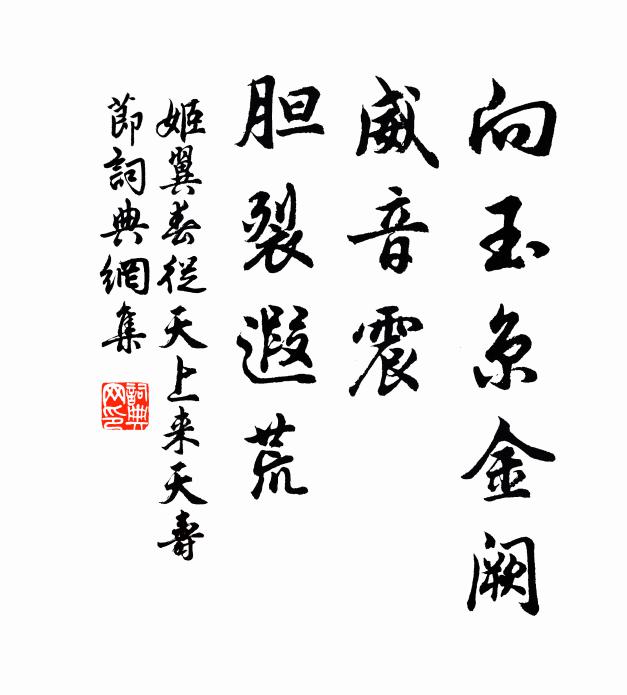 向玉京金阙
威音震
胆裂遐荒
姬翼春從天上来天壽
節詞典網集
詞典網印